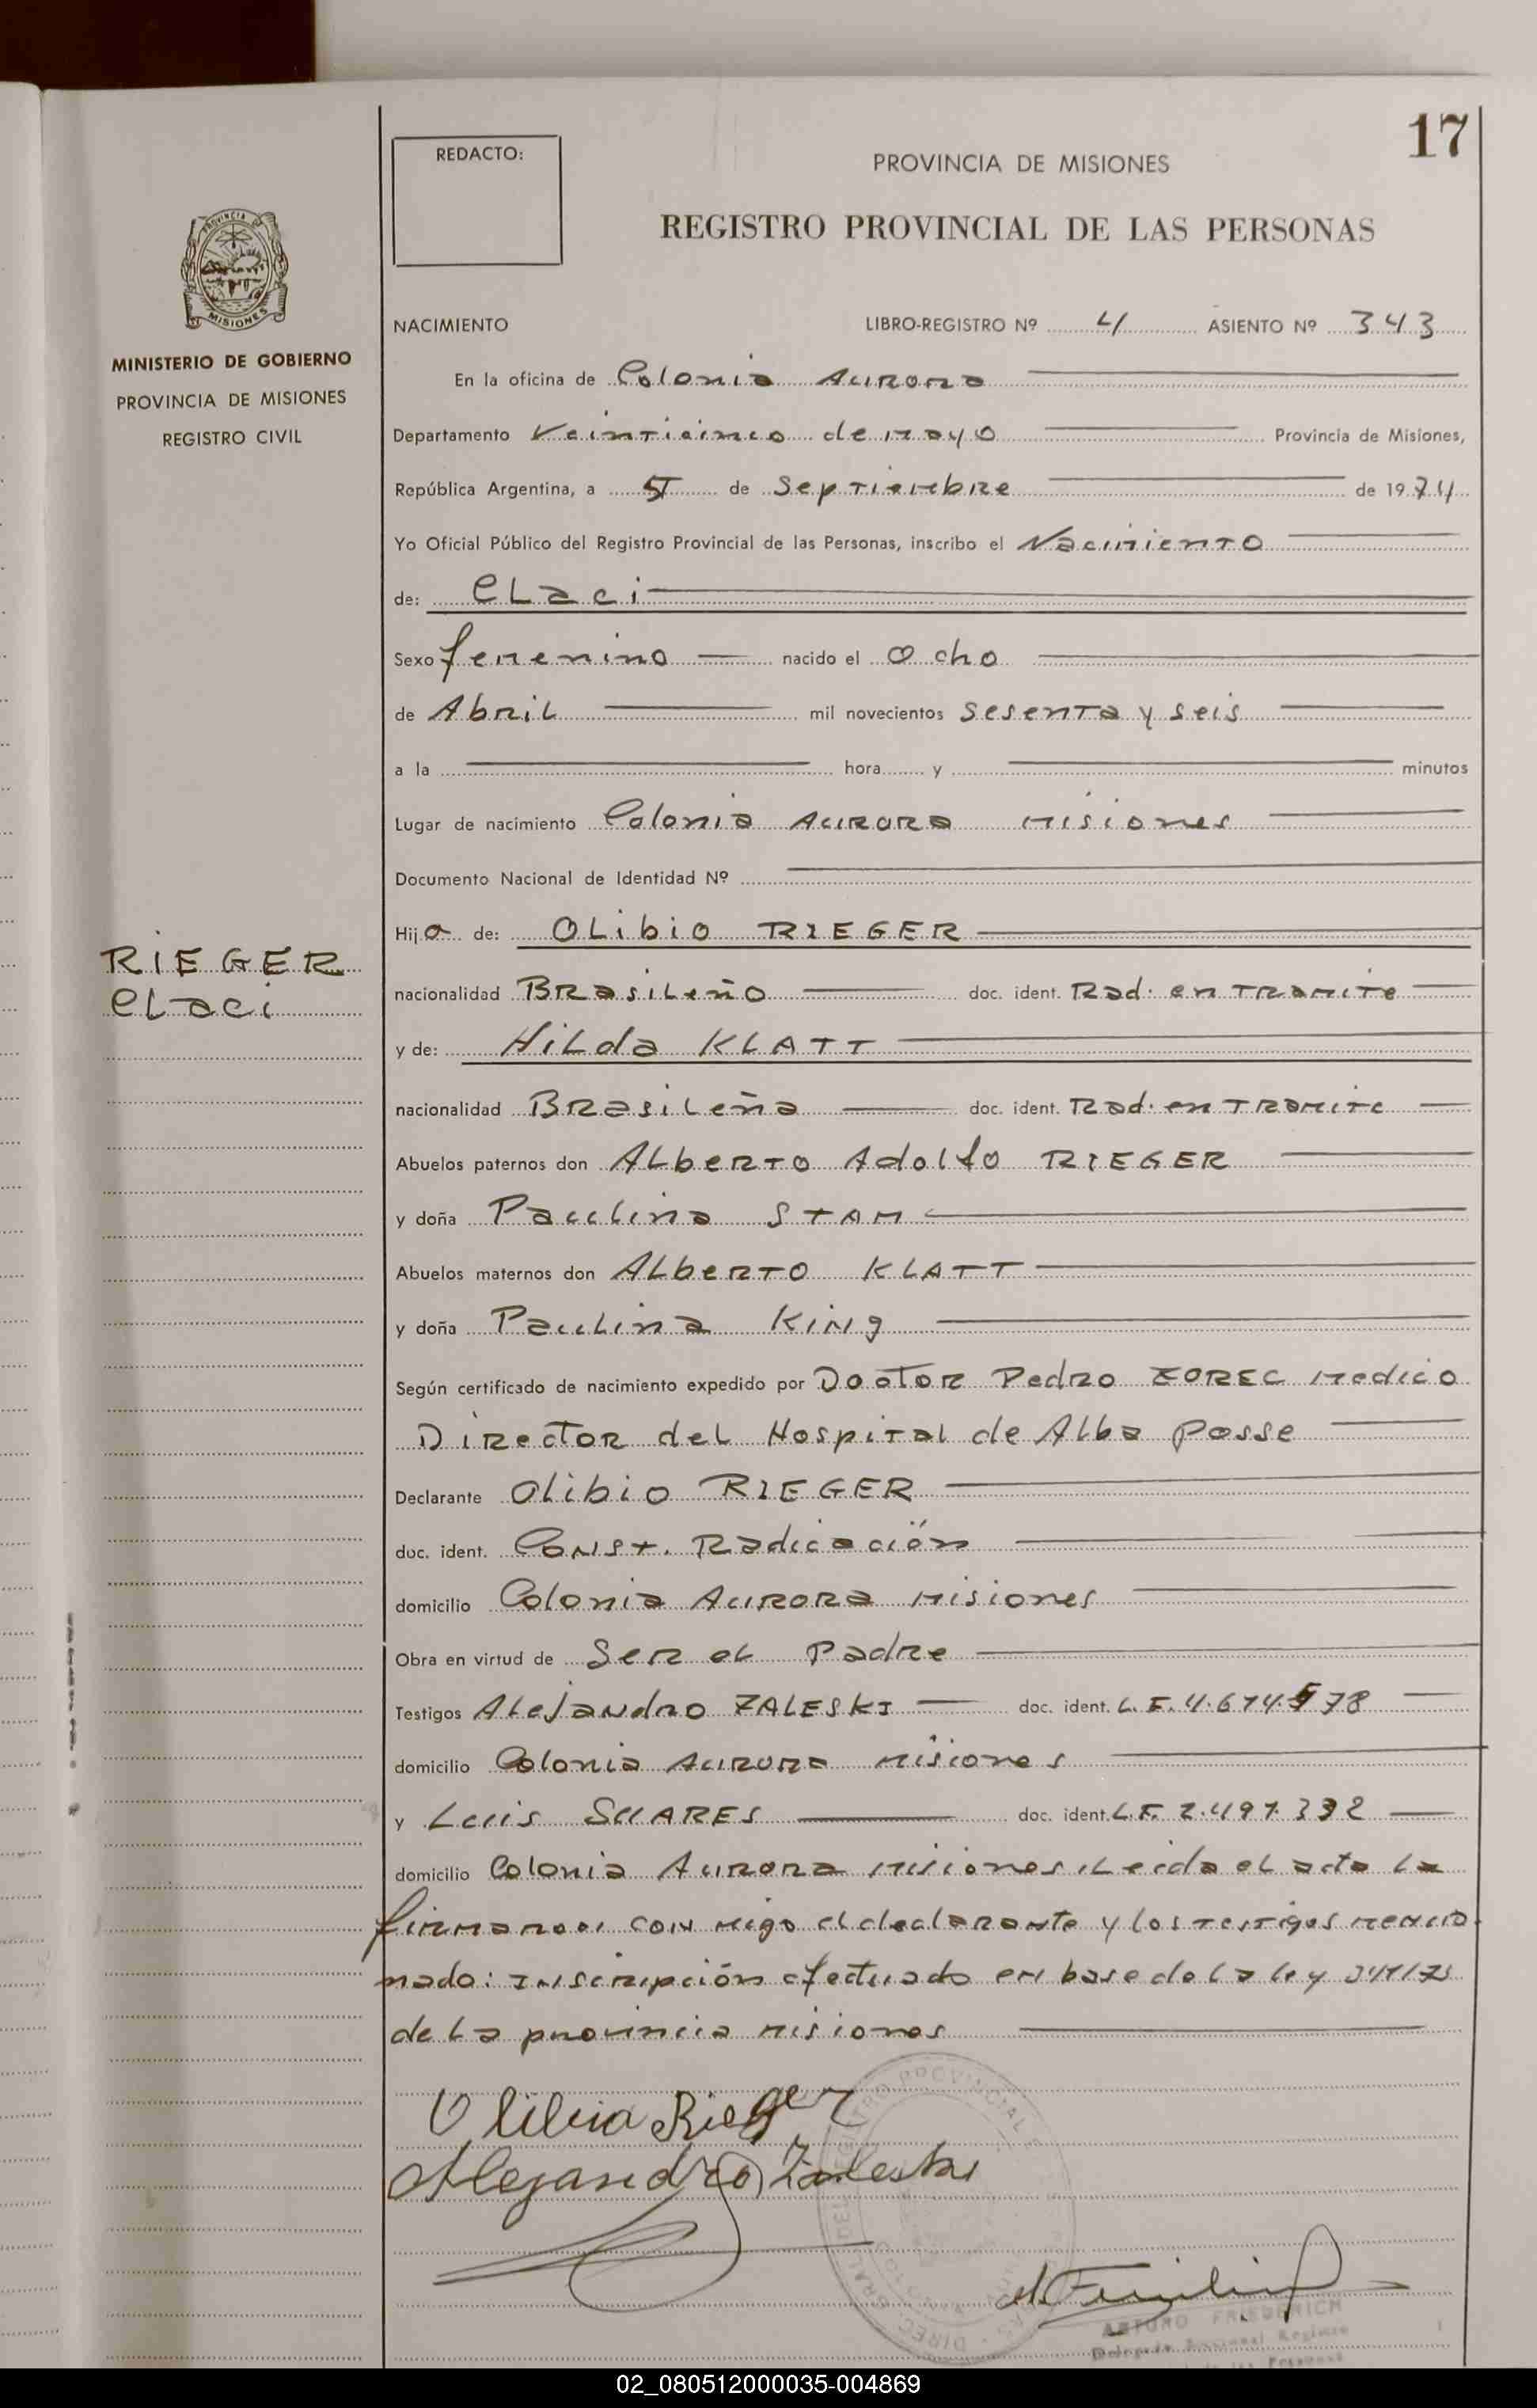 17
REDACTO:
PROVINCIA DE MISIONES
REGISTRO PROVINCIAL DE LAS PERSONAS
PROVINCIA
MISIONES
MINISTERIO DE GOBIERNO
PROVINCIA DE MISIONES
REGISTRO CIVIL
NACIMIENTO LIBRO-REGISTRO Nº 4 ASIENTO Nº 343
En la oficina de Colonia Aurora
Departamento Veinticinco de mayo Provincia de Misiones,
República Argentina, a 5 de Septiembre de 1974
Yo Oficial Público del Registro Provincial de las Personas, inscribo el Nacimiento
de: Elaci
Sexo femenino nacido el Ocho
de Abril mil novecientos sesenta y seis
a la hora y minutos
Lugar de nacimiento Colonia Aurora Misiones
Documento Nacional de Identidad Nº
RIEGER
Elaci
Hija de: Olibio RIEGER
nacionalidad Brasileño doc. ident. Rad. en Tramite
y de: Hilda KLATT
nacionalidad Brasileña doc. ident. Rad. en Tramite
Abuelos paternos don Alberto Adolfo RIEGER
y doña Paulina STAM
Abuelos maternos don Alberto KLATT
y doña Paulina King
Según certificado de nacimiento expedido por Doctor Pedro ZOREC Medico
Director del Hospital de Alba Posse
Declarante Olibio RIEGER
doc. ident. Const. Radicación
domicilio Colonia Aurora Misiones
Obra en virtud de Ser el Padre
Testigos Alejandro ZALESKI doc. ident. L.E. 4.674.578
domicilio Colonia Aurora Misiones
y Luis SUARES doc. ident. L.E. 2.497.332
domicilio Colonia Aurora Misiones Leida el acta la
con migo el declarante y los testigos mencio
nado: Inscripción efectuado en base de la ley
de la provincia Misiones
Olibio Rieger
Alejandro Zaleski
REGISTRO PROVINCIAL
ARTURO FRIEDERICH
02_080512000035-004869